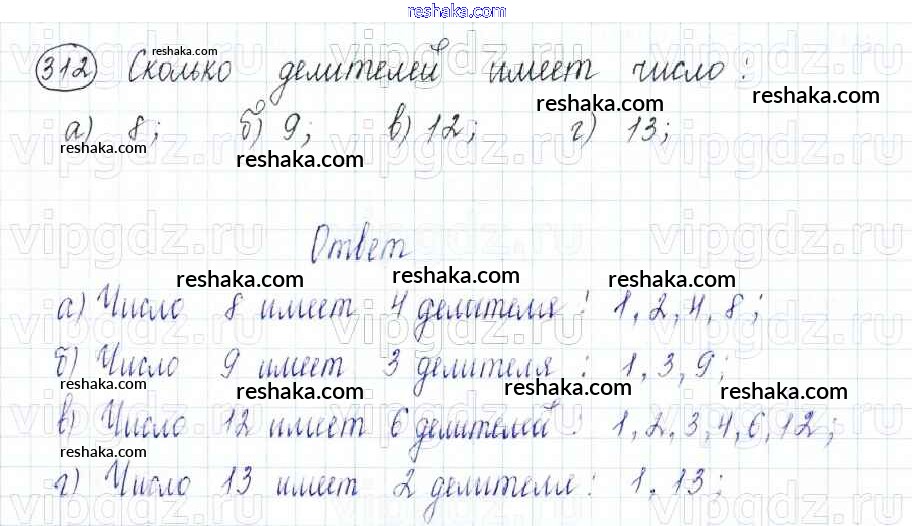 reshaka.com
312 Сколько делителей имеет число:
reshaka.com
reshaka.com
reshaka.com
а) 8; б) 9; в) 12; г) 13;
reshaka.com
reshaka.com
reshaka.com
vipgdz.ru
Ответ
reshaka.com
reshaka.com
reshaka.com
а) Число 8 имеет 4 делителя: 1, 2, 4, 8;
б) Число 9 имеет 3 делителя: 1, 3, 9;
reshaka.com
reshaka.com
reshaka.com
в) Число 12 имеет 6 делителей: 1, 2, 3, 4, 6, 12;
reshaka.com
г) Число 13 имеет 2 делителя: 1, 13;